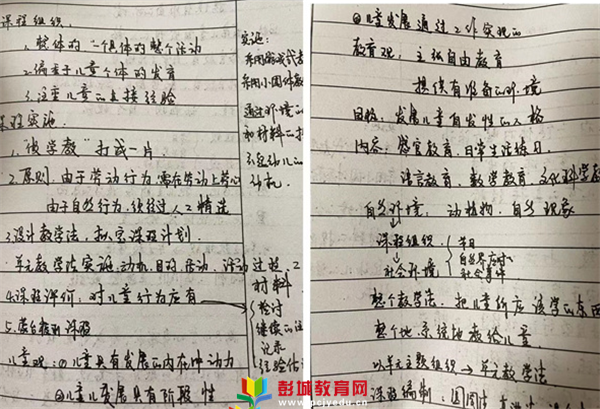 课程组织.
1. 整体的、一个具体的整个活动
2. 偏重于儿童个体的发育
3. 注重儿童的直接经验
课程实施.
1. "做学教"打成一片
2. 原则. 由于劳动行为, 需在劳动上劳心
由于自然行为, 须经过人工精选
3. 设计教学法, 拟定课程计划.
单元教学法实施. 动机. 目的. 活动. 活动过程.
4. 课程评价. 对儿童行为应有
材料
检讨
继续的
记录
经验估
儿童观: ①儿童具有发展的内在冲动力
②儿童发展具有阶段性
实施:
采用游戏式
采用小团体教
通过环境的
和材料的
引起幼儿的
动机.
④儿童发展通过工作实现的
教育观: 主张自由教育
提供有准备的环境
目标: 发展儿童自发性的人格
内容: 感官教育. 日常生活练习.
语言教育. 数学教育. 文化科学教
自然环境: 动植物. 自然现象
课程组织: 节日
社会环境 自然界应时
社会事件
整个教学法: 把儿童所应该学的东西
整个地系统地教给儿童.
以单元主题组织→单元教学法
课程编制: 圆周
彭城教育网
www.pcjyedu.cn